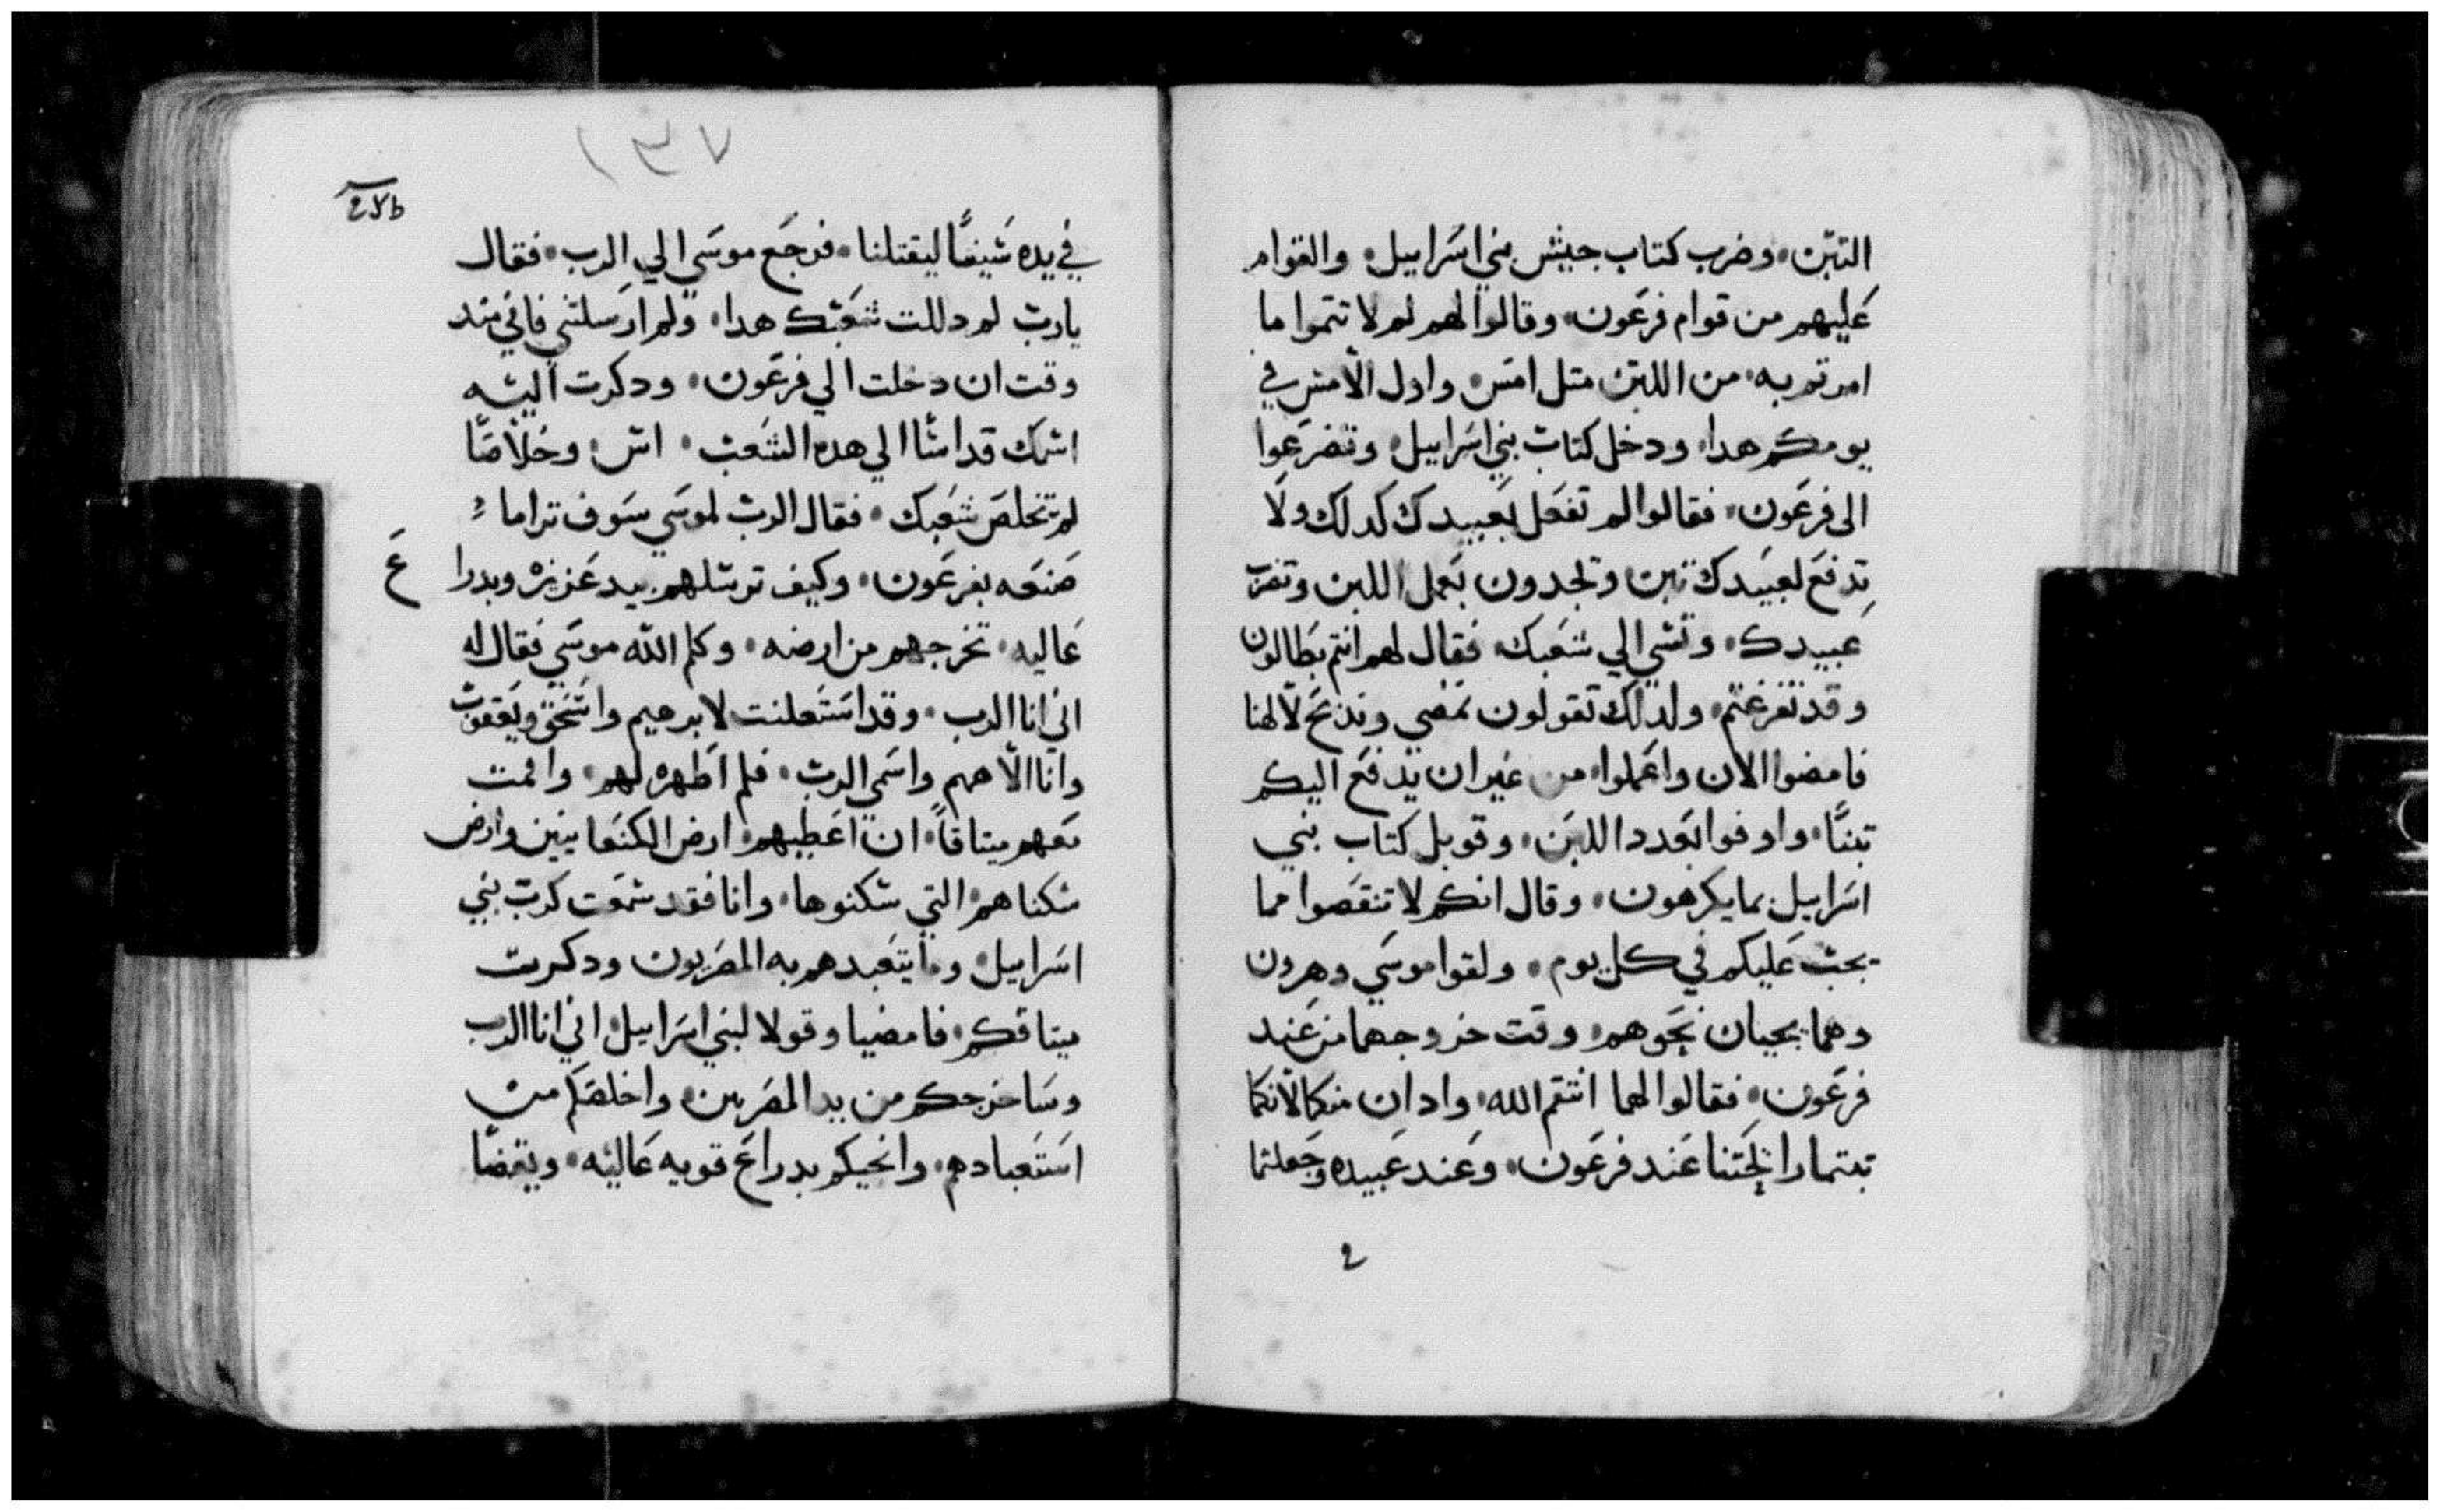 التبن، وضرب كتاب جيش بني اسراييل، والقوام
عليهم من قوام فرعون، وقالوا لهم لم لا تتموا ما
امرتم به، من اللبن متل امس، واول الامس في
يومكم هدا، ودخل كتاب بني اسراييل، وتضرعوا
الى فرعون، فقالوا لم تفعل بعبيدك كدلك ولا
تدفع لعبيدك تبن وتجدون بعمل اللبن وتضرب
عبيدك، وتسي الي شعبك، فقال لهم انتم بطالون
وقد تفرغتم، ولدلك تقولون نمضي وندبح لالهنا
فامضوا الان واعملوا، من غير ان يدفع اليكم
تبنًا، واوفوا بعدد اللبن، وقوبل كتاب بني
اسراييل بما يكرهون، وقال انكم لا تنقصوا مما
يجب عليكم في كل يوم، ولقوا موسي وهرون
وهما يجيان نحوهم، وقت خروجهما من عند
فرعون، فقالوا لهما انتقم الله، وادان منكما لانكما
رايحتنا عند فرعون، وعند عبيده وجعلتما
2
١٣٧
في يده شيفًا ليقتلنا، فرجع موسي الي الرب، فقال
يارب لم دللت شعبك هدا، ولم ارسلتني فاني مند
وقت ان دخلت الي فرعون، ودكرت اليه
اسمك قد اسا الي هده الشعب، وخلاصًا
لم تخلص شعبك، فقال الرب لموسي سوف ترا ما
صنعه بفرعون، وكيف ترسلهم بيد عزيزه وبدرا ع
عاليه، تخرجهم من ارضه، وكلم الله موسي فقال له
اني انا الرب، وقد استعلنت لابرهيم واسحق ويعقوب
وانا الاههم واسمي الرب، فلم اظهره لهم، واقمت
معهم ميتاقًا، ان اعطيهم ارض الكنعانيين وارض
سكناهم، التي سكنوها، وانا فقد سمعت كرب بني
اسراييل، وما يتعبدهم به المصريون ودكرت
ميتاقكم، فامضيا وقولا لبني اسراييل، اني انا الرب
وساخرجكم من يد المصريين، واخلصكم من
استعبادهم، وانجيكم بدراع قويه عاليه، وبقضا